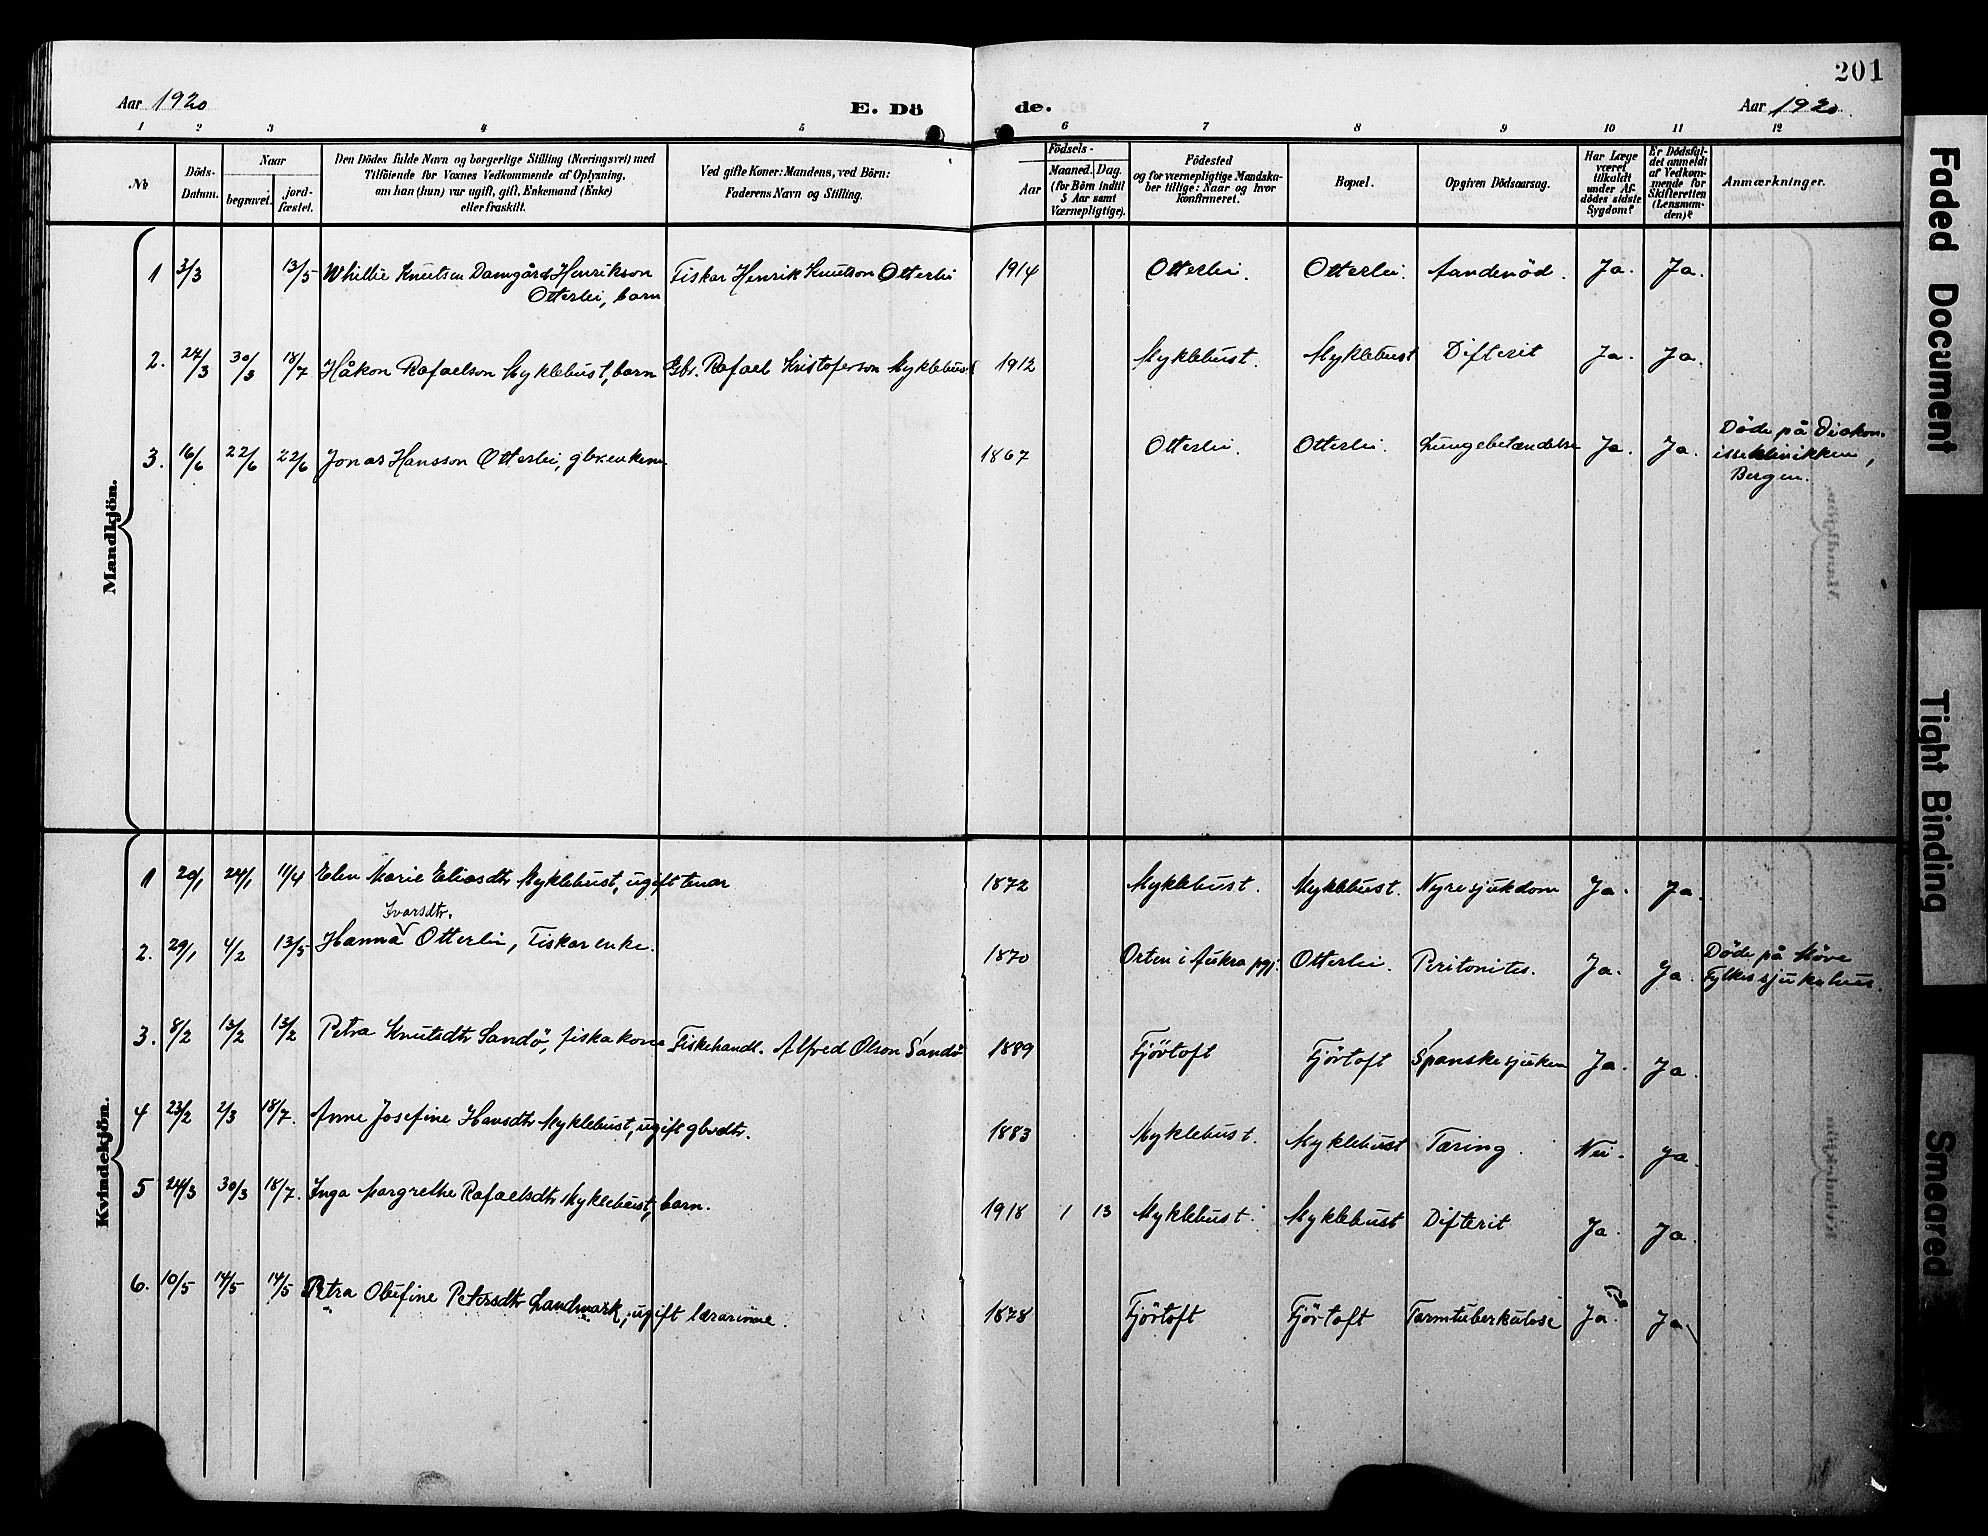 201
Aar 1920 E. Dö de. Aar 1920.
1 2 3 4 5 6 7 8 9 10 11 12
No
Döds-Datum.
Naar
begravet.
jord-fæstet.
Den Dödes fulde Navn og borgerlige Stilling (Næringsvei) med
Tilföiende for Voxnes Vedkommende af Oplysning,
om han (hun) var ugift, gift, Enkemand (Enke)
eller fraskilt.
Ved gifte Koner: Mandens, ved Börn:
Faderens Navn og Stilling.
Födsels-
Aar
Maaned. Dag.
(for Börn indtil
5 Aar samt
Værnepligtige).
Födested
og for værnepligtige Mandska-
ber tillige: Naar og hvor
konfirmeret.
Bopæl.
Opgiven Dödsaarsag.
Har Læge
været
tilkaldt
under Af-
dödes sidste
Sygdom?
Er Dödsfal-
det anmeldt
af Vedkom-
mende for
Skifteretten
(Lensman-
den)?
Anmærkninger.
Mandkjön.
1 3/3 13/5 Whillie Knutsen Damgård Henrikson Fiskar Henrik Knutson Otterlei 1914 Otterlei. Otterlei. Aandenöd. Ja. Ja.
Otterlei, barn
2. 24/3 30/3 18/7 Håkon Rafaelson Myklebust, barn Gbr. Rafael Kristoferson Myklebust 1912 Myklebust. Myklebust Difterit Ja. Ja.
3. 16/6 22/6 22/6 Jonas Hansson Otterlei, gbr.enkem. 1867 Otterlei. Otterlei. Lungebetændelse Ja. Ja. Döde på Diakon-
isseklinikken,
Bergen.
Kvindekjön.
1 20/1 24/1 11/4 Elen Marie Eliasdtr Myklebust, ugift tenar 1872 Myklebust. Myklebust. Nyresjukdom Ja. Ja.
Ivarsdtr.
2. 29/1 4/2 13/5 Hanna Otterlei, Fiskarenke. 1870 Orten i Aukra pgj. Otterlei. Peritonites. Ja. Ja. Döde på Möre
Fylkessjukehus.
3. 8/2 13/2 13/2 Petra Knutsdtr Sandö, fiskakone Fiskehandl. Alfred Olson Sandö 1889 Fjörtoft Fjörtoft Spanskesjuken Ja. Ja.
4 23/2 2/3 18/7. Anne Josefine Hansdtr Myklebust, ugift gbrdtr. 1883 Myklebust. Myklebust Tæring. Nei. Ja.
5 24/3 30/3 18/7. Inga Margrethe Rafaelsdtr Myklebust, barn. 1918 1 13 Myklebust. Myklebust Difterit Ja. Ja.
6. 10/5 14/5 14/5 Petra Olufine Petersdtr Landmark, ugift lærarinne. 1878 Fjörtoft Fjörtoft Tarmtuberkulose Ja. Ja.
Faded Document
Tight Binding
Smeared